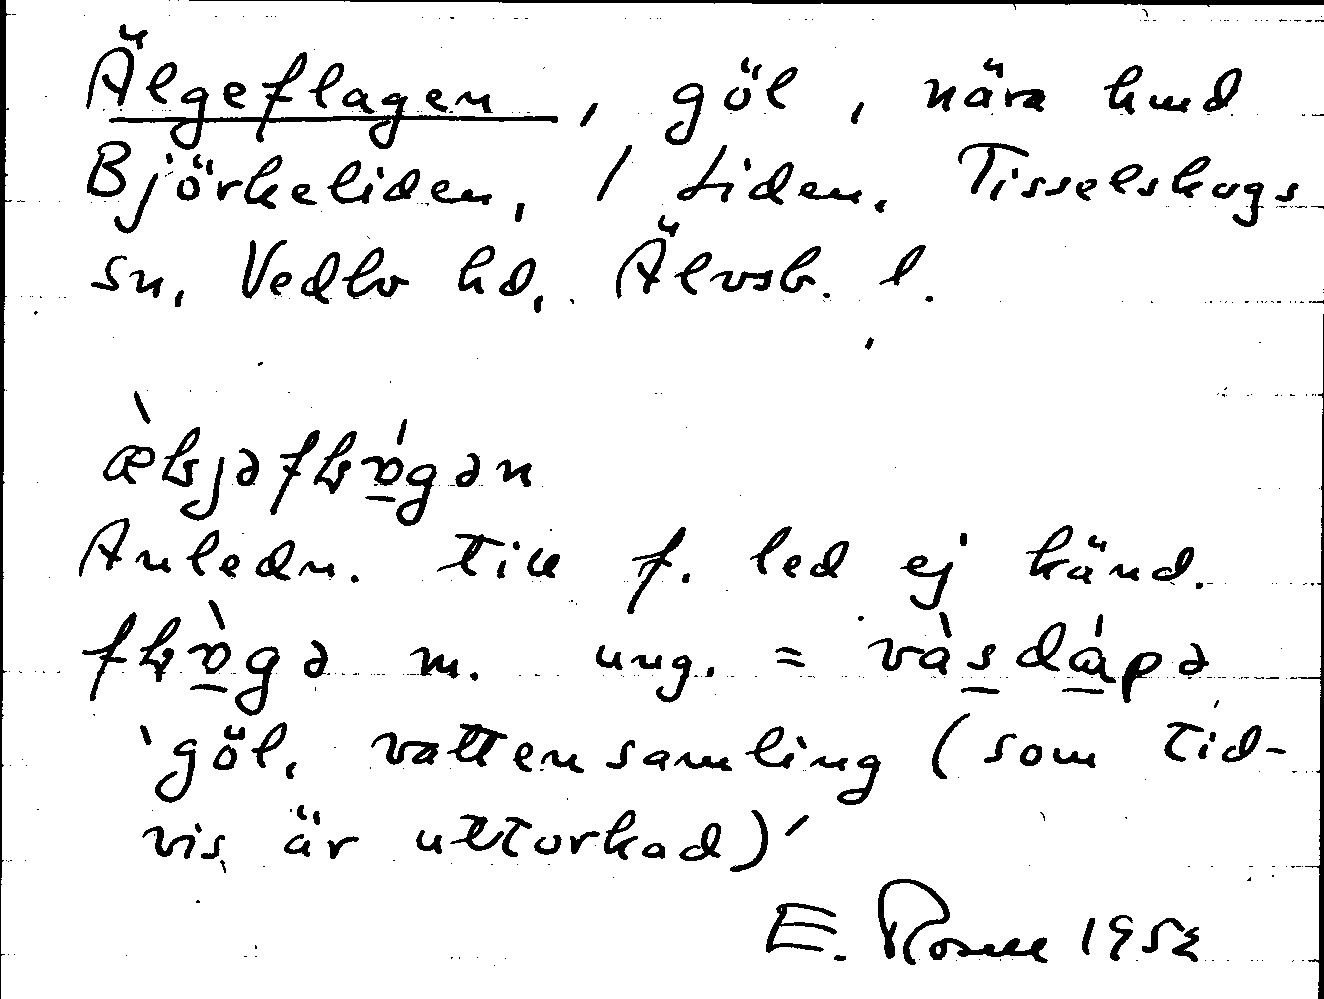 Älgeflagen, göl, nära hmd
Björkeliden, 1 Liden. Tisselskogs
sn, Vedbo hd, Älvsb. l.
Anledn. till f. led ej känd.
m. ung. =
'göl, vattensamling (som tid-
vis är uttorkad)'
E. Rosell 1952